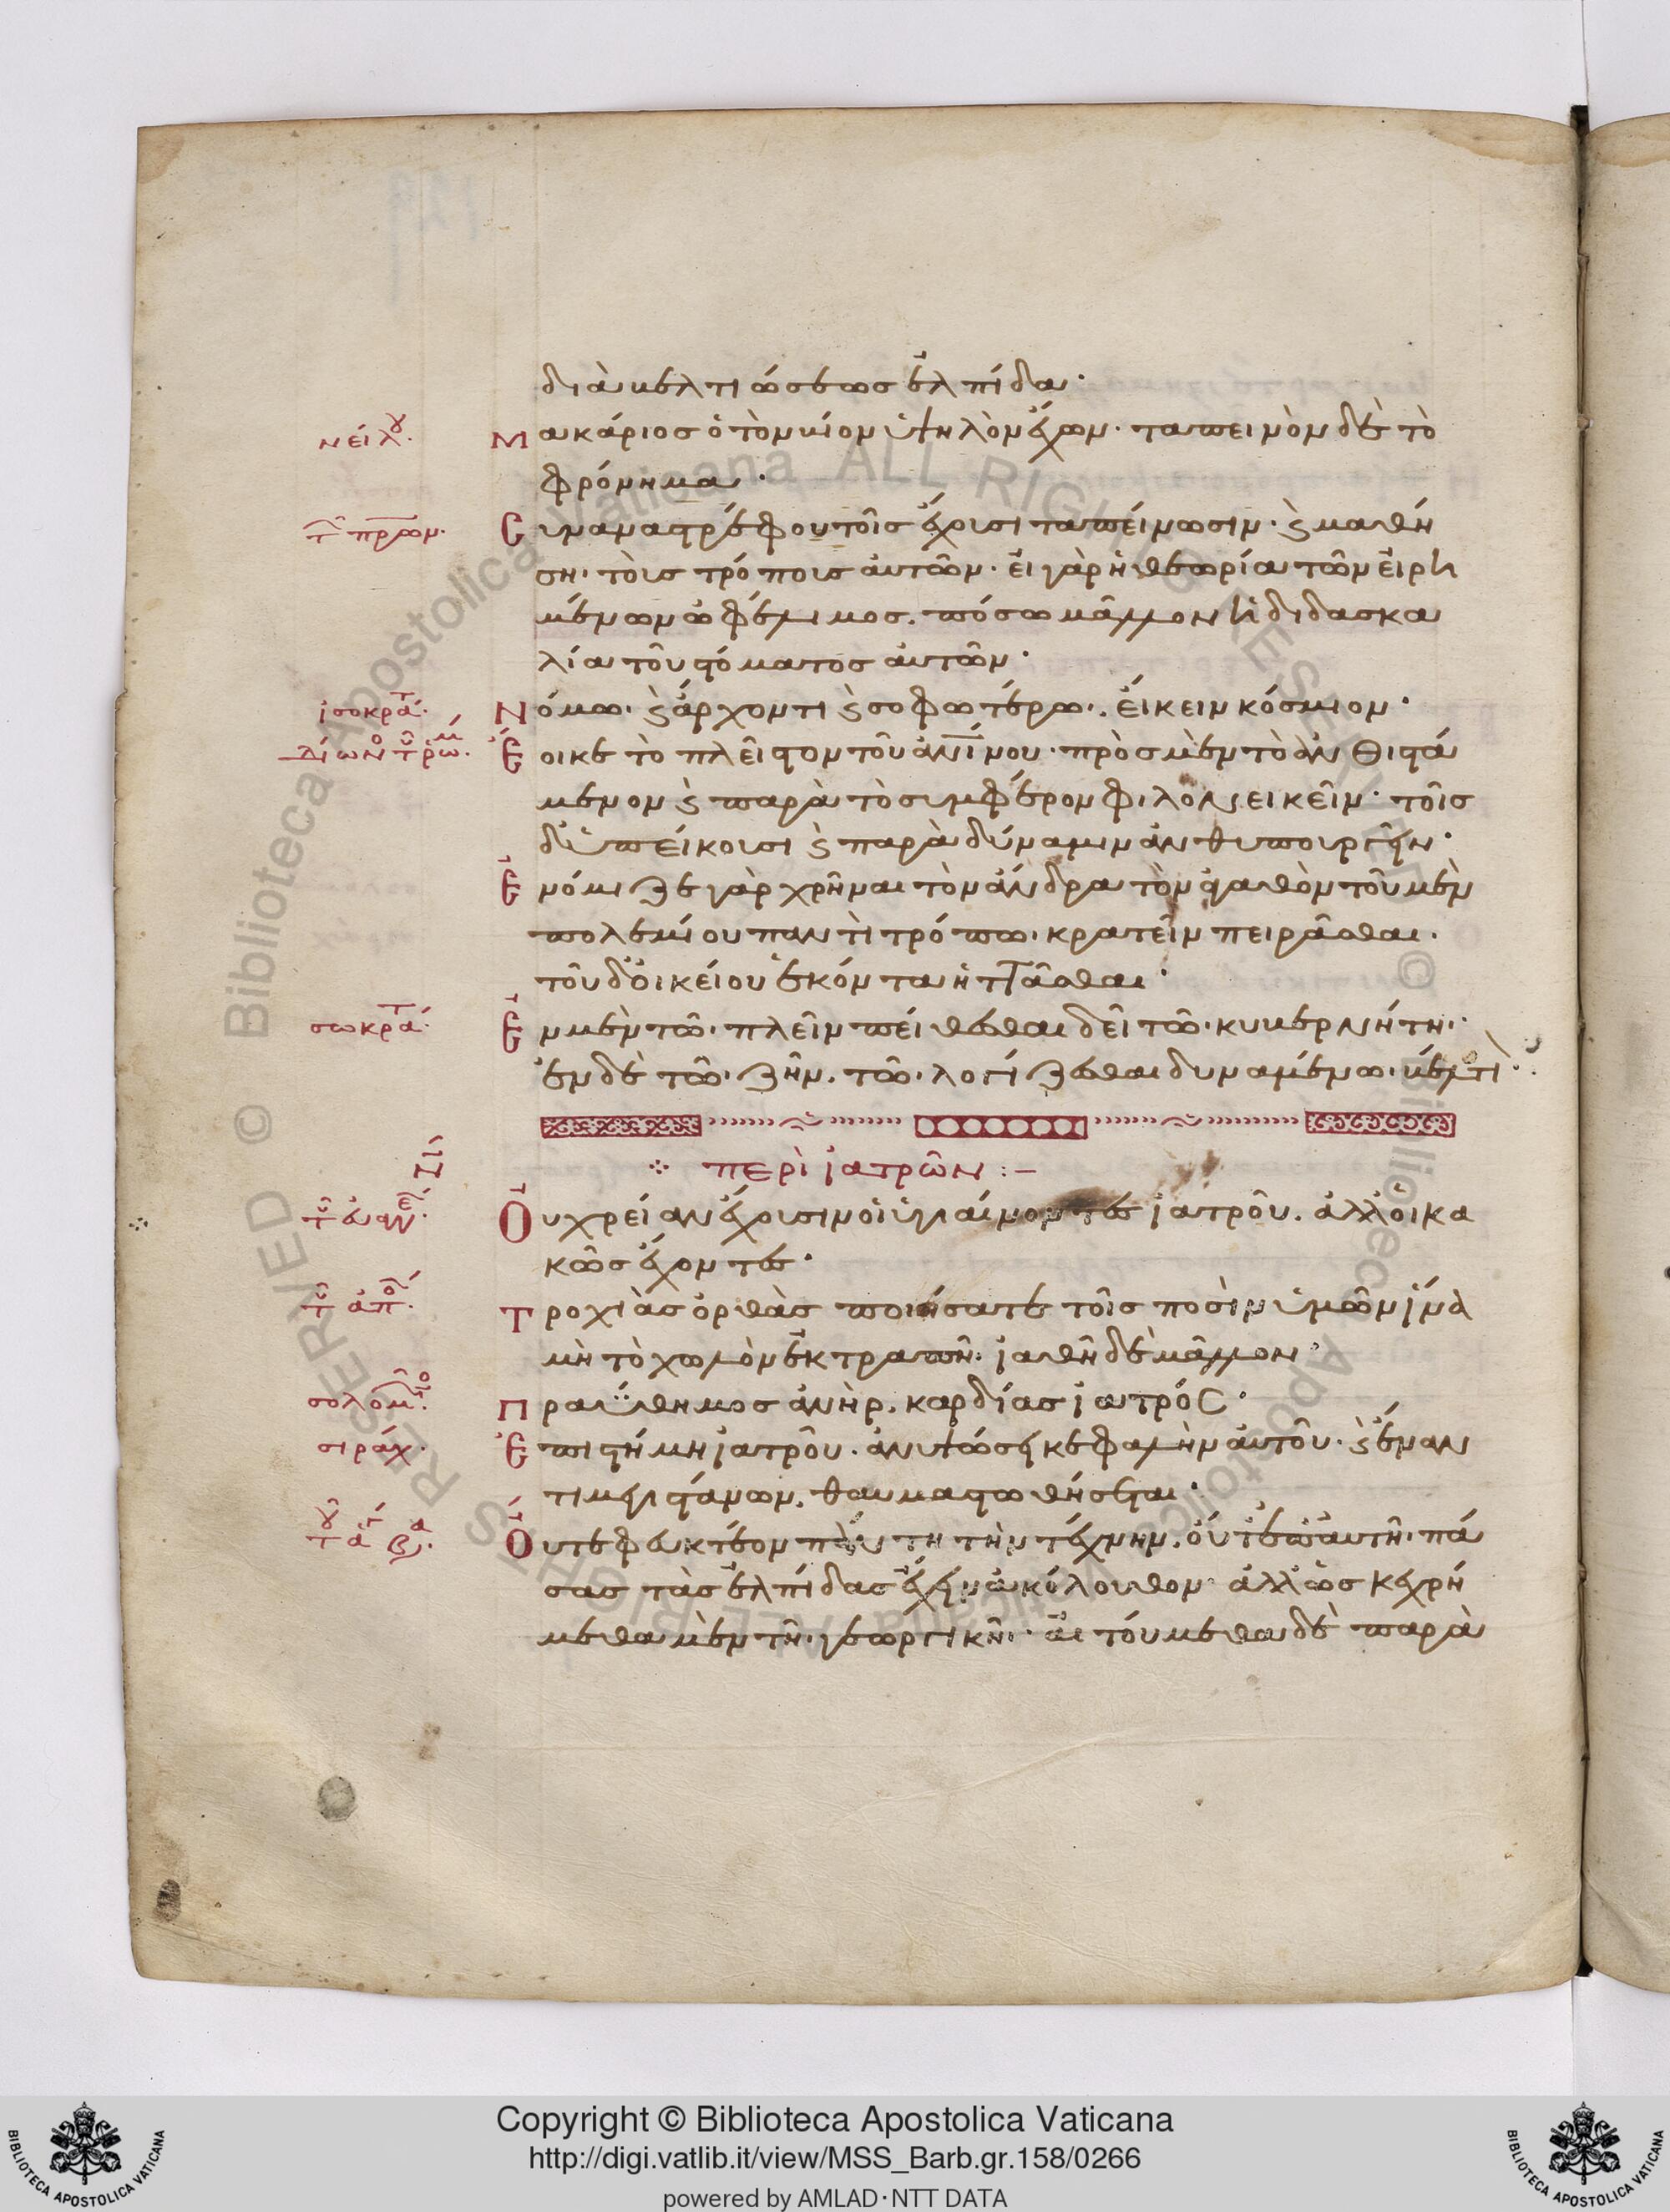 διὰ βελτιώσεως ἐλπίδα·
νείλου. Μακάριος ὁ τὸν βίον ὑψηλὸν ἔχων· ταπεινὸν δὲ τὸ
φρόνημα·
Συναναστρέφου τοῖς ἔχουσι ταπείνωσιν· καὶ μαθή
ση τοῖς τρόποις αὐτῶν· εἰ γὰρ ἡ θεωρία τῶν εἰρη
μένων ὠφέλιμος. πόσω μᾶλλον ἡ διδασκα
λία τοῦ στόματος αὐτῶν·
ἰσοκρατ. Νόμω· καὶ ἄρχοντι καὶ σοφωτέρω. εἴκειν κόσμιον·
Ἔοικε τὸ πλεῖστον τοῦ ἀνίνου· πρὸς μὲν τὸ ἀνθιστά
μενον καὶ παρὰ τὸ συμφέρον φιλονεικεῖν· τοῖς
δ' ὑπείκουσι καὶ παρὰ δύναμιν ἀνθυπουργεῖν·
Ἐνόμιζε γὰρ χρῆναι τὸν ἄνδρα τὸν ἀγαθὸν τοῦ μὲν
πολεμίου παντὶ τρόπω. κρατεῖν πειρᾶσθαι.
τοῦ δ' οἰκείου ἑκόντα ἡττᾶσθαι·
σωκρατ. Ἐν μὲν τῶ πλεῖν πείθεσθαι δεῖ τῶ κυβερνήτη·
ἐν δὲ τῶ ζῆν. τῶ λογίζεσθαι δυναμένω βέλτι·
ζι
περὶ ἰατρῶν :–
τοῦ εὐαγγελ. Οὐ χρείαν ἔχουσιν οἱ ὑγιαίνοντες ἰατροῦ. ἀλλ' οἱ κα
κῶς ἔχοντες·
τοῦ ἀποστ. Τροχιὰς ὀρθὰς ποιήσατε τοῖς ποσὶν ὑμῶν ἵνα
μὴ τὸ χωλὸν ἐκτραπῆ· ἰαθῆ δὲ μᾶλλον·
σολομ. Πραΰθυμος ἀνὴρ. καρδίας ἰατρός·
σιράχ. Ἐπιστήμη ἰατροῦ. ἀνυψώσει κεφαλὴν αὐτοῦ· καὶ ἔναν
τι μεγιστάνων. θαυμαστωθήσεται·
Οὔτε φευκτέον πάντη τὴν τέχνην. οὔτ' ἐπ' αὐτῆ πά
σας τὰς ἐλπίδας ἔχειν ἀκόλουθον· ἀλλ' ὡς κεχρή
μεθα μὲν τῆ γεωργικῆ· αἰτούμεθα δὲ παρὰ
Copyright © Biblioteca Apostolica Vaticana
http://digi.vatlib.it/view/MSS_Barb.gr.158/0266
powered by AMLAD·NTT DATA